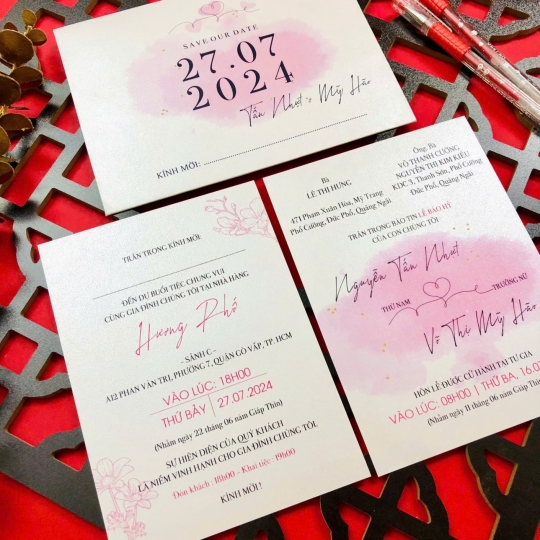 SAVE OUR DATE
27.07
2024
Tấn Nhựt & Mỹ Hảo
KÍNH MỜI:
TRÂN TRỌNG KÍNH MỜI
ĐẾN DỰ BUỔI TIỆC CHUNG VUI
CÙNG GIA ĐÌNH CHÚNG TÔI TẠI NHÀ HÀNG
Hương Phố
- SẢNH C -
A12 PHAN VĂN TRỊ, PHƯỜNG 7, QUẬN GÒ VẤP, TP. HCM
VÀO LÚC: 18H00
THỨ BẢY | 27.07.2024
(Nhằm ngày 22 tháng 06 năm Giáp Thìn)
SỰ HIỆN DIỆN CỦA QUÝ KHÁCH
LÀ NIỀM VINH HẠNH CHO GIA ĐÌNH CHÚNG TÔI.
Đón khách : 18h00 - Khai tiệc : 19h00
KÍNH MỜI !
Bà
LÊ THỊ HÙNG
471 Phạm Xuân Hòa, Mỹ Trang
Phổ Cường, Đức Phổ, Quảng Ngãi
Ông, Bà
VÕ THANH CƯỜNG
NGUYỄN THỊ KIM KIỀU
KDC 3, Thanh Sơn, Phổ Cường
Đức Phổ, Quảng Ngãi
TRÂN TRỌNG BÁO TIN LỄ BÁO HỶ
CỦA CON CHÚNG TÔI
Nguyễn Tấn Nhựt
THỨ NAM
TRƯỞNG NỮ
Võ Thị Mỹ Hảo
HÔN LỄ ĐƯỢC CỬ HÀNH TẠI TƯ GIA
VÀO LÚC: 08H00 | THỨ BA, 16.07
(Nhằm ngày 11 tháng 06 năm Giáp Thìn)